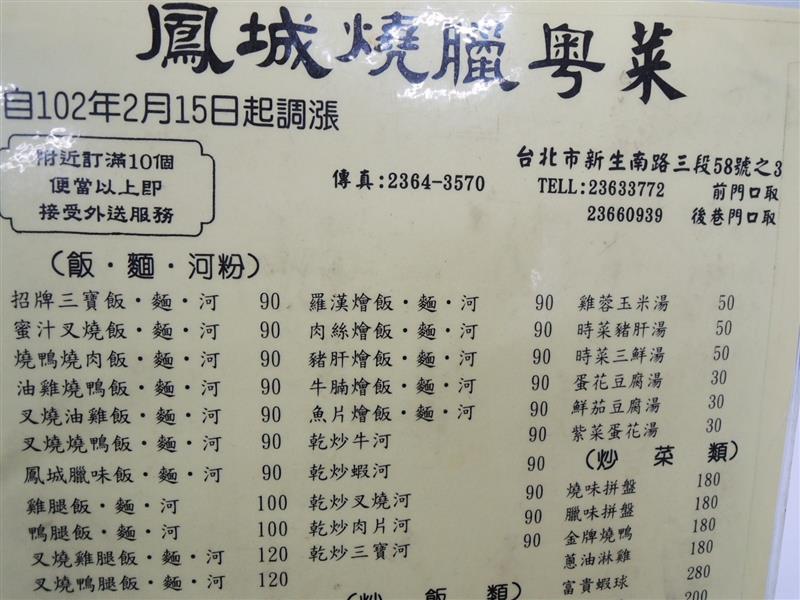 鳳城燒臘粵菜
自102年2月15日起調漲
附近訂滿10個
便當以上即
接受外送服務
傳真:2364-3570
台北市新生南路三段58號之3
TELL:23633772 前門口取
23660939 後巷門口取
(飯·麵·河粉)
招牌三寶飯·麵·河 90
蜜汁叉燒飯·麵·河 90
燒鴨燒肉飯·麵·河 90
油雞燒鴨飯·麵·河 90
叉燒油雞飯·麵·河 90
叉燒燒鴨飯·麵·河 90
鳳城臘味飯·麵·河 90
雞腿飯·麵·河 100
鴨腿飯·麵·河 100
叉燒雞腿飯·麵·河 120
叉燒鴨腿飯·麵·河 120
羅漢燴飯·麵·河 90
肉絲燴飯·麵·河 90
豬肝燴飯·麵·河 90
牛腩燴飯·麵·河 90
魚片燴飯·麵·河 90
乾炒牛河 90
乾炒蝦河 90
乾炒叉燒河 90
乾炒肉片河 90
乾炒三寶河 90
(炒飯類)
雞蓉玉米湯 50
時菜豬肝湯 50
時菜三鮮湯 50
蛋花豆腐湯 30
鮮茄豆腐湯 30
紫菜蛋花湯 30
(炒菜類)
燒味拼盤 180
臘味拼盤 180
金牌燒鴨 180
蔥油淋雞 180
富貴蝦球 280
200